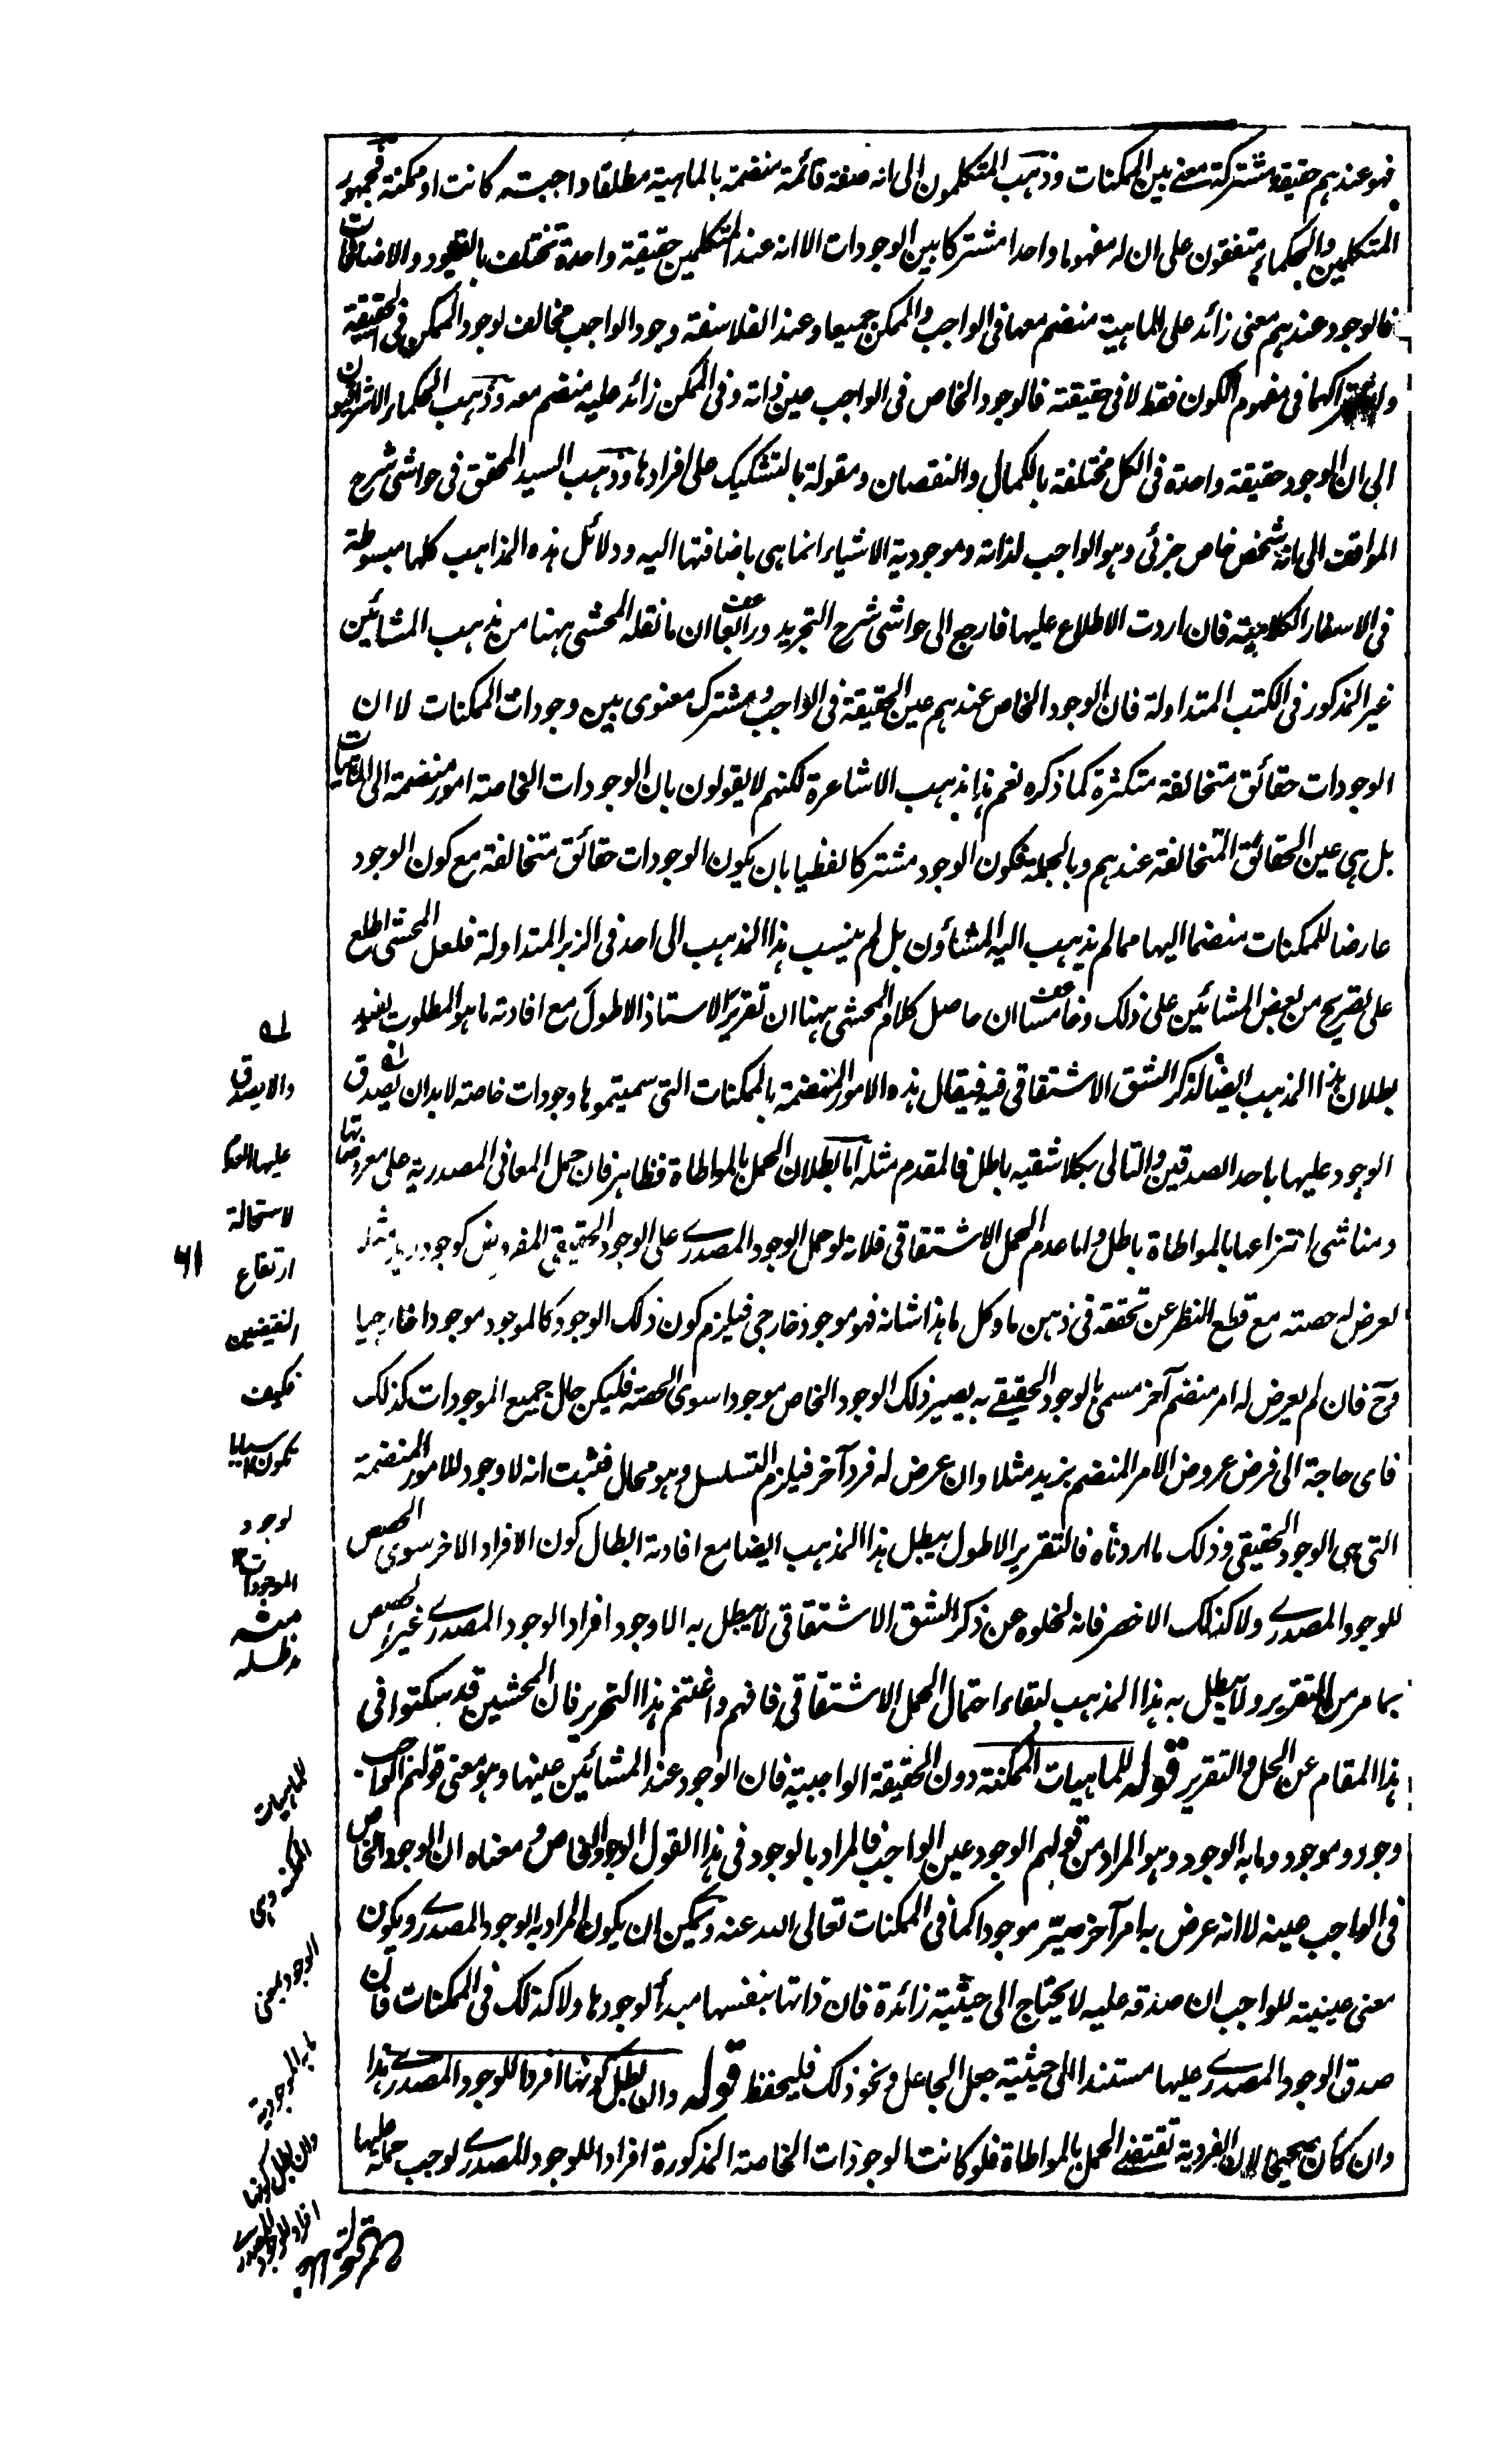 فهو عندهم حقيقة مشتركة معنى بين الممكنات وذهب المتكلمون الى انه صفة قائمة منضمة بالماهية مطلقا واجبة كانت او ممكنة فجمهور
المتكلمين والحكماء متفقون على ان له مفهوما واحدا مشتركا بين الوجودات الا انه عند المتكلمين حقيقة واحدة تختلف بالقيود والاضافات
فالوجود عندهم معنى زائد على الماهية منضم معها فى الواجب والممكن جميعا وعند الفلاسفة وجود الواجب مخالف لوجود الممكن فى الحقيقة
واشتراكهما فى مفهوم الكون فقط لا فى حقيقته فالوجود الخاص فى الواجب عين ذاته وفى الممكن زائد عليه منضم معه وذهب الحكماء الاشراقيون
الى ان الوجود حقيقة واحدة فى الكل مختلفة بالكمال والنقصان ومقولة بالتشكيك على افرادها وذهب السيد المحقق فى حواشى شرح
المواقف الى انه شخص خاص جزئى وهو الواجب لذاته وموجودية الاشياء انما هى باضافتها اليه ودلائل هذه المذاهب كلها مبسوطة
فى الاسفار الكلامية فان اردت الاطلاع عليها فارجع الى حواشى شرح التجريد ورابعا ان ما نقله المحشى ههنا من مذهب المشائين
غير المذكور فى الكتب المتداولة فان الوجود الخاص عندهم عين الحقيقة فى الواجب ومشترك معنوى بين وجودات الممكنات لا ان
الوجودات حقائق متخالفة متكثرة كما ذكره نعم هذا مذهب الاشاعرة لكنهم لا يقولون بان الوجودات الخاصة امور منضمة الى الماهيات
بل هى عين الحقائق المتخالفة عندهم وبالجملة فكون الوجود مشتركا لفظيا بان يكون الوجودات حقائق متخالفة مع كون الوجود
عارضا للممكنات منضما اليها مما لم يذهب اليه المشاؤن بل لم ينسب هذا المذهب الى احد فى الزبر المتداولة فلعل المحشى اطلع
على تصريح من بعض المشائين على ذلك وخامسا ان حاصل كلام المحشى ههنا ان تقرير الاستاذ الاطول مع افادته ما هو المطلوب يفيد
بطلان هذا المذهب ايضا لذكر الشق الاشتقاقى فيه فيقال هذه الامور المنضمة بالممكنات التى سميتموها وجودات خاصة لا بد ان يصدق
الوجود عليها باحد الصدقين والتالى بكلا شقيه باطل فالمقدم مثله اما بطلان الحمل بالمواطاة فظاهر فان حمل المعانى المصدرية على معروضاتها
ومناشى انتزاعها بالمواطاة باطل واما عدم الحمل الاشتقاقى فلانه لو حمل الوجود المصدرى على الوجود الحقيقى المفروض كوجود زيد مثلا
لعرض له حصته مع قطع النظر عن تحققه فى ذهن ما وكل ما هذا شانه فهو موجود خارجى فيلزم كون ذلك الوجود كالموجود موجودا خارجيا
وح فان لم يعرض له امر منضم آخر مسمى بالوجود الحقيقى به يصير ذلك الوجود الخاص موجودا سوى الحصة فليكن حال جميع الموجودات كذلك
فاى حاجة الى فرض عروض الامر المنضم بزيد مثلا وان عرض له فرد آخر فيلزم التسلسل وهو محال فثبت انه لا وجود للامور المنضمة
التى هى الوجود الحقيقى وذلك ما اردناه فالتقرير الاطول يبطل هذا المذهب ايضا مع افادته ابطال كون الافراد الاخر سوى الحصص
للوجود المصدرى ولا كذلك الاخصر فانه لخلوه عن ذكر الشق الاشتقاقى لا يبطل به الا وجود افراد الوجود المصدرى غير الحصص
بما مر من التقرير ولا يبطل به هذا المذهب لبقاء احتمال الحمل الاشتقاقى فافهم واغتنم هذا التحرير فان المحشين قد سكتوا فى
هذا المقام عن الحل والتقرير قوله للماهيات الممكنة دون الحقيقة الواجبية فان الوجود عند المشائين عينها وهو معنى قولهم الواجب
وجود وموجود وما به الوجود وهو المراد من قولهم الوجود عين الواجب فالمراد بالوجود فى هذا القول الوجود الخاص ومعناه ان الوجود الخاص
فى الواجب عينه لا انه عرض به امر آخر صير موجودا كما فى الممكنات تعالى الله عنه ويمكن ان يكون المراد به الوجود المصدرى ويكون
معنى عينيته للواجب ان صدقه عليه لا يحتاج الى حيثية زائدة فان ذاتها بنفسها مبدأ لوجودها ولا كذلك فى الممكنات فان
صدق الوجود المصدرى عليها مستندا الى حيثية جعل الجاعل ونحو ذلك فليحفظ قوله وان بطل كونها افرادا للوجود المصدرى هذا
وان كان صحيحا لان الفردية تقتضى الحمل بالمواطاة فلو كانت الوجودات الخاصة المذكورة افرادا للوجود المصدرى لوجب حمله عليها
له
والا يصدق
عليها العدم
لاستحالة
ارتفاع
النقيضين
فكيف
تكون اسبابا
لوجود
الموجودات
منه
مدظله
٦١
للماهيات
الممكنة وهى
الوجود بمعنى
ما به الموجودية
وان بطل كونها
افرادا للوجود المصدرى